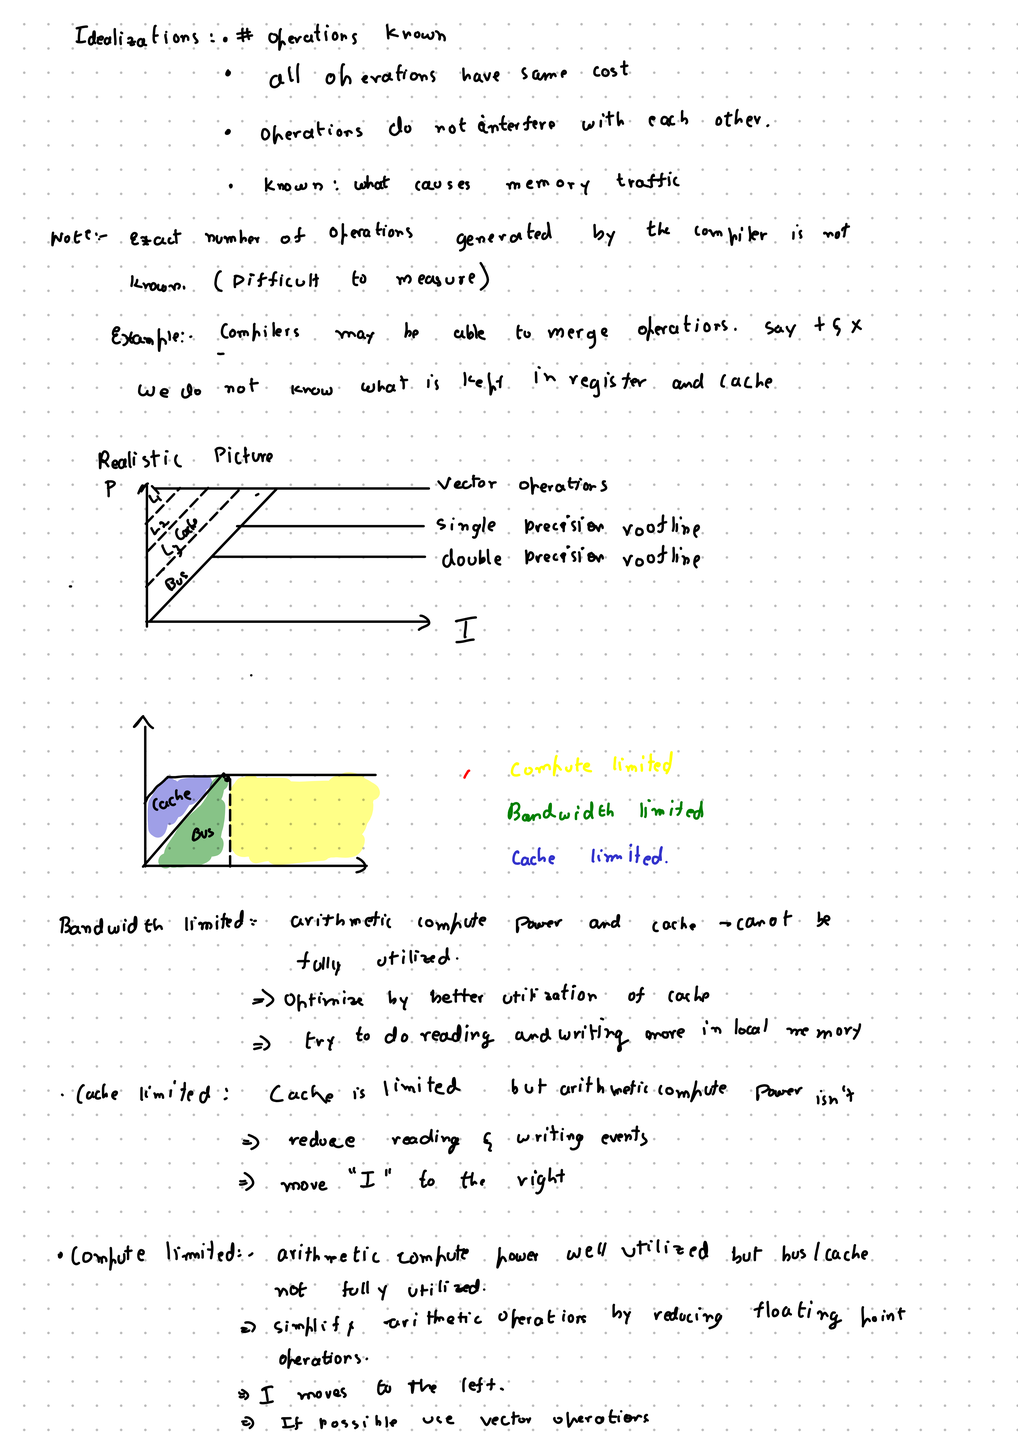 Idealizations :. # operations known
• all operations have same cost
• operations do not interfere with each other.
• known : what causes memory traffic
Note:- exact number of operations generated by the compiler is not
known. (Difficult to measure)
Example:- Compilers may be able to merge operations. say + & x
We do not know what is kept in register and cache
Realistic Picture
P
L1
L2
L3 Cache
Bus
vector operations
single precision roofline
double precision roofline
I
Cache
Bus
Compute limited
Bandwidth limited
Cache limited.
Bandwidth limited:- arithmetic compute power and cache → canot be
fully utilized.
=> Optimize by better utilization of cache
=> try to do reading and writing more in local memory
• Cache limited : Cache is limited but arithmetic compute power isn't
=> reduce reading & writing events
=> move "I" to the right
• Compute limited:- arithmetic compute power well utilized but bus/cache
not fully utilized.
=> simplify arithmetic operations by reducing floating point
operations.
=> I moves to the left.
=> If possible use vector operations